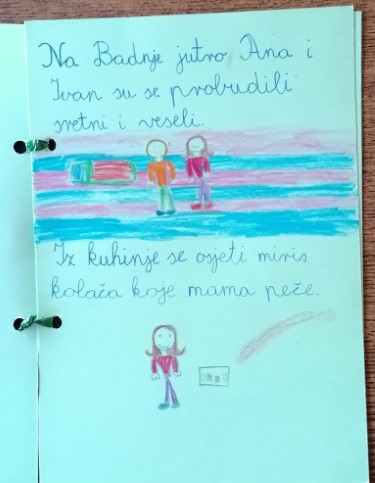 Na Badnje jutro, Ana i
Ivan su se probudili
sretni i veseli.
Iz kuhinje se osjeti miris
kolača koje mama peče.